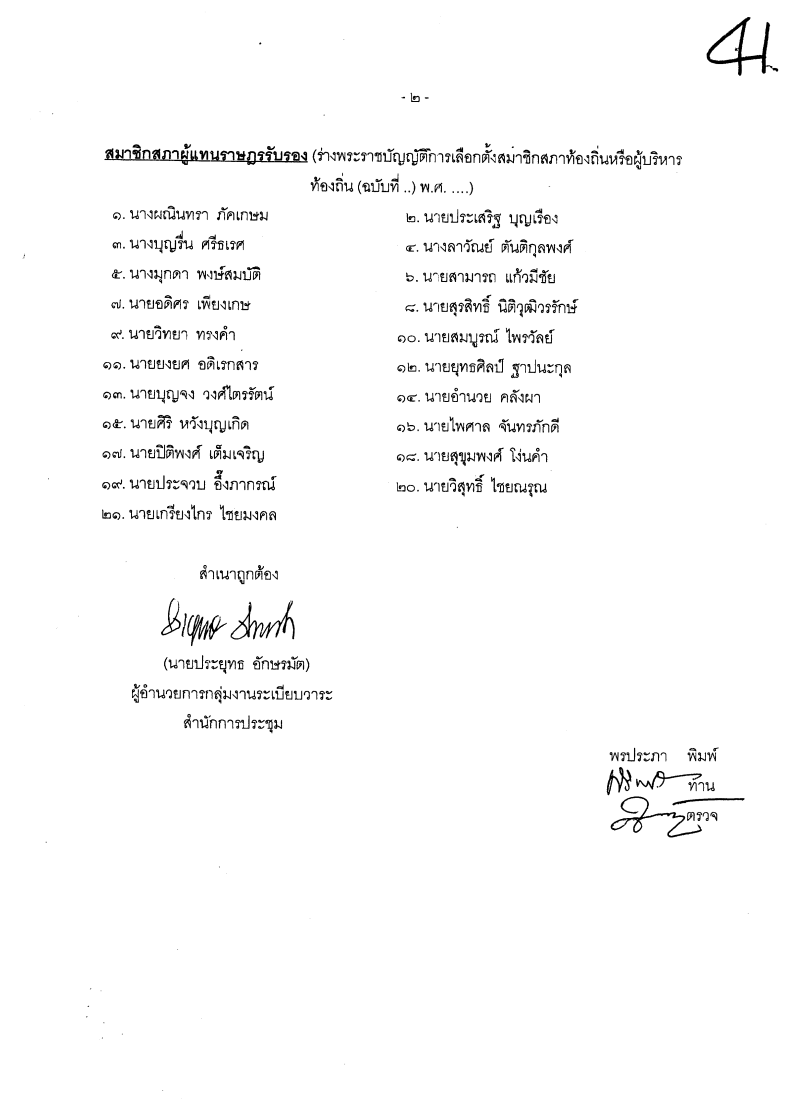 - ๒ -
สมาชิกสภาผู้แทนราษฎรรับรอง (ร่างพระราชบัญญัติการเลือกตั้งสมาชิกสภาท้องถิ่นหรือผู้บริหาร
ท้องถิ่น (ฉบับที่ ..) พ.ศ. ....)
๑. นางผณินทรา ภัคเกษม ๒. นายประเสริฐ บุญเรือง
๓. นางบุญรื่น ศรีธเรศ ๔. นางลาวัณย์ ตันติกุลพงศ์
๕. นางมุกดา พงษ์สมบัติ ๖. นายสามารถ แก้วมีชัย
๗. นายอดิศร เพียงเกษ ๘. นายสุรสิทธิ์ นิติวุฒิวรรักษ์
๙. นายวิทยา ทรงคำ ๑๐. นายสมบูรณ์ ไพรวัลย์
๑๑. นายยงยศ อดิเรกสาร ๑๒. นายยุทธศิลป์ ฐาปนะกุล
๑๓. นายบุญจง วงศ์ไตรรัตน์ ๑๔. นายอำนวย คลังผา
๑๕. นายศิริ หวังบุญเกิด ๑๖. นายไพศาล จันทรภักดี
๑๗. นายปิติพงศ์ เต็มเจริญ ๑๘. นายสุขุมพงศ์ โง่นคำ
๑๙. นายประจวบ อึ๊งภากรณ์ ๒๐. นายวิสุทธิ์ ไชยณรุณ
๒๑. นายเกรียงไกร ไชยมงคล
สำเนาถูกต้อง
(นายประยุทธ อักษรมัต)
ผู้อำนวยการกลุ่มงานระเบียบวาระ
สำนักการประชุม
พรประภา พิมพ์
ทาน
ตรวจ